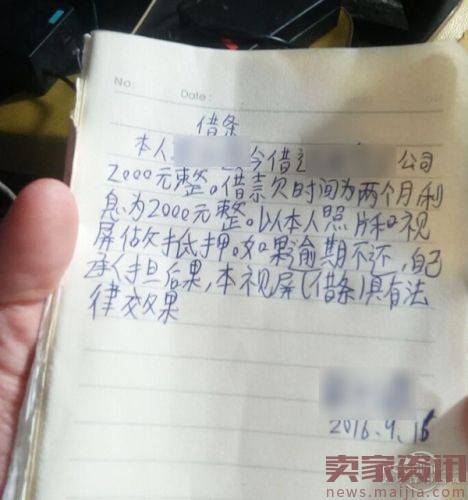 No:
Date:
借条
本人 今借到 公司
2000元整。借款欠时间为两个月利
息为2000元整。以本人照片和视
屏做抵押。如果逾期不还,自己
承担后果,本视屏(借条)具有法
律效果
2016.9.15
卖家资讯
news.maijia.com